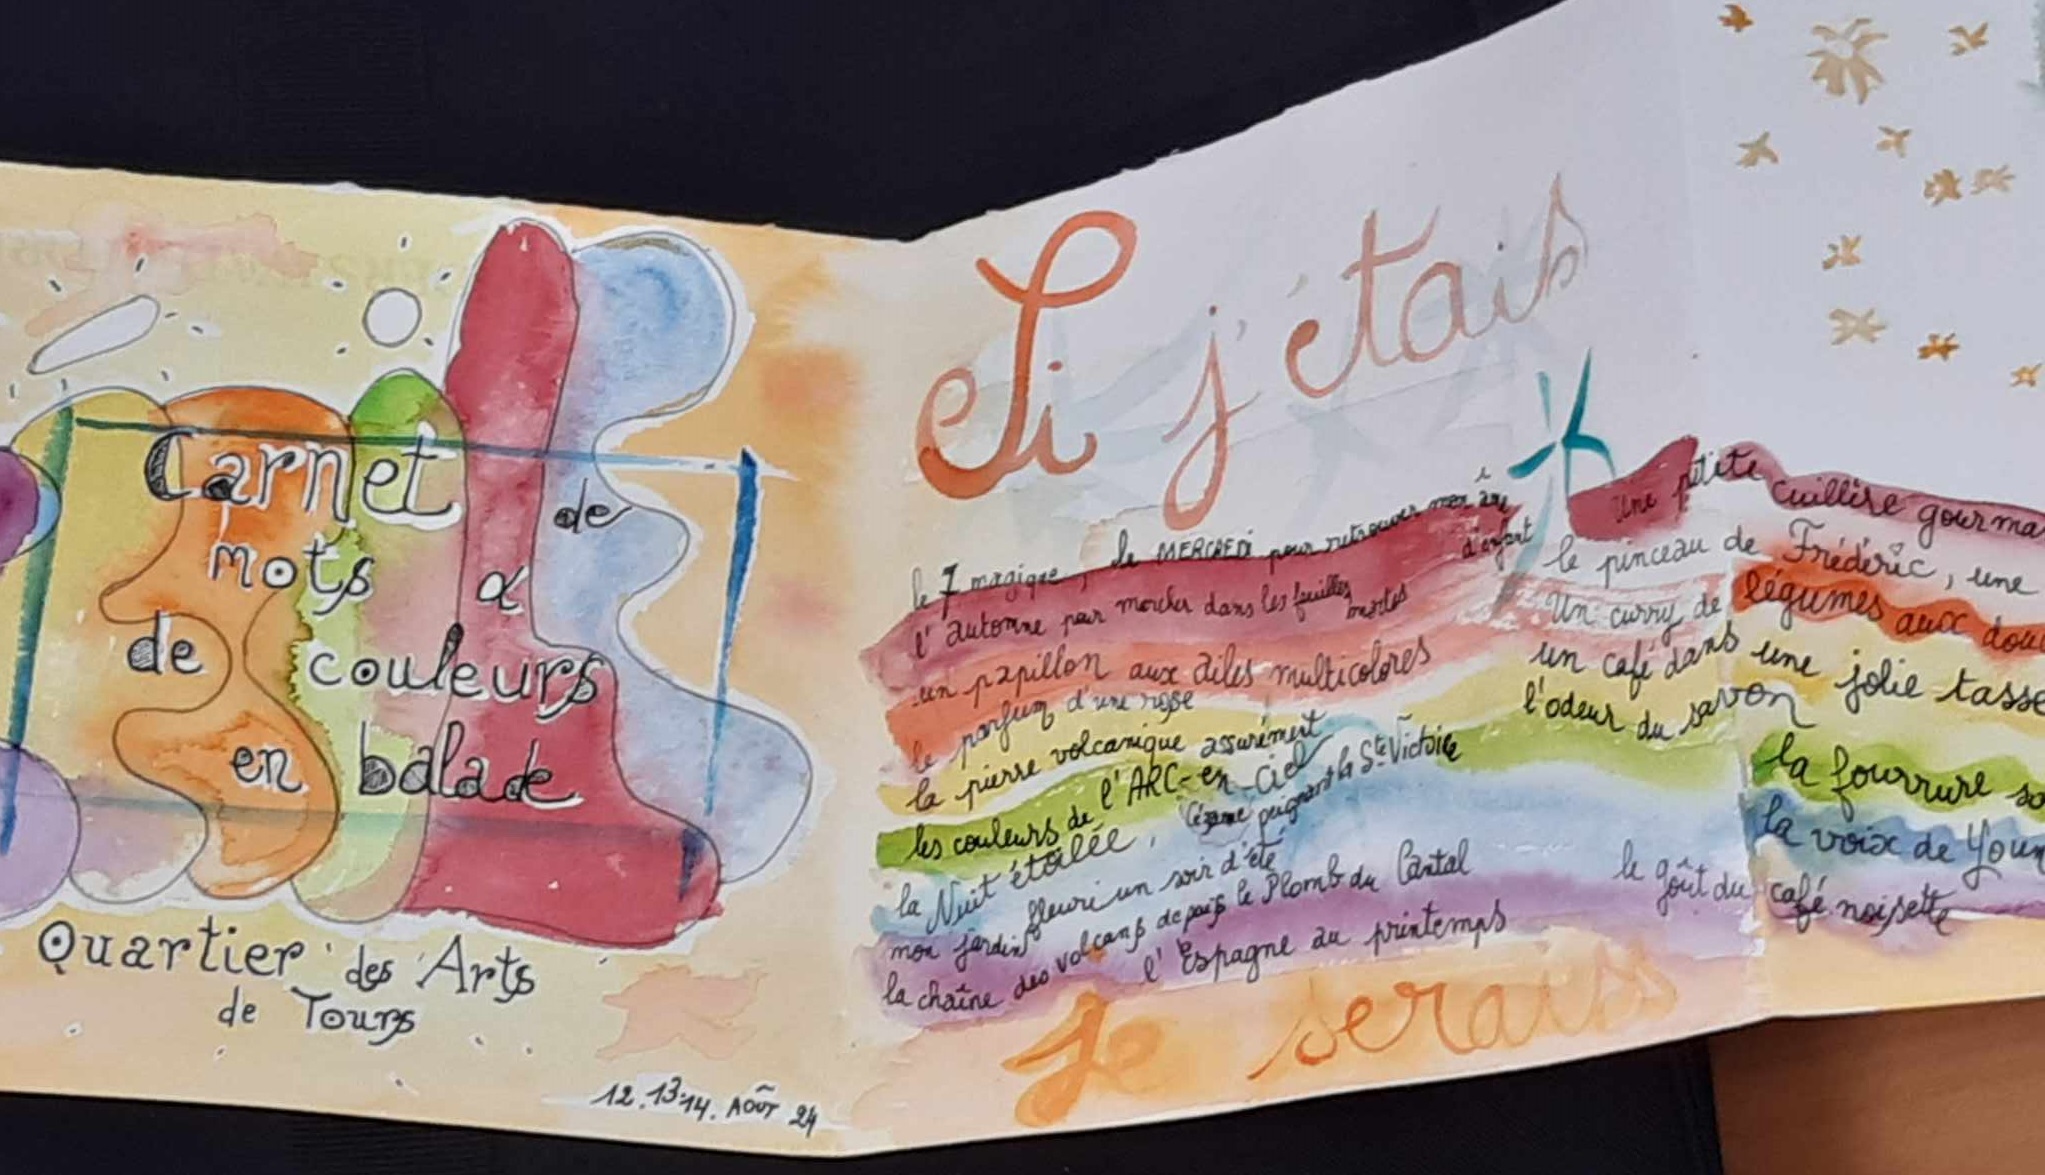 Carnet de
mots &
de couleurs
en balade
Quartier des Arts
de Tours
12.13.14. AOÛT 24
Si j'étais
le 7 magique, le MERCREDI pour retrouver mon âme
d'enfant
l'automne pour marcher dans les feuilles
mortes
un papillon aux ailes multicolores
le parfum d'une rose
la pierre volcanique assurément
les couleurs de l'ARC-en-Ciel
la Nuit étoilée, Cézanne peignant la Ste Victoire
mon jardin fleuri un soir d'été
la chaîne des volcans depuis le Plomb du Cantal
l'Espagne au printemps
je serais
Une petite cuillère
le pinceau de Frédéric, une
Un curry de légumes aux
un café dans une jolie tasse
l'odeur du savon
la fourrure
la voix de
le goût du café noisette